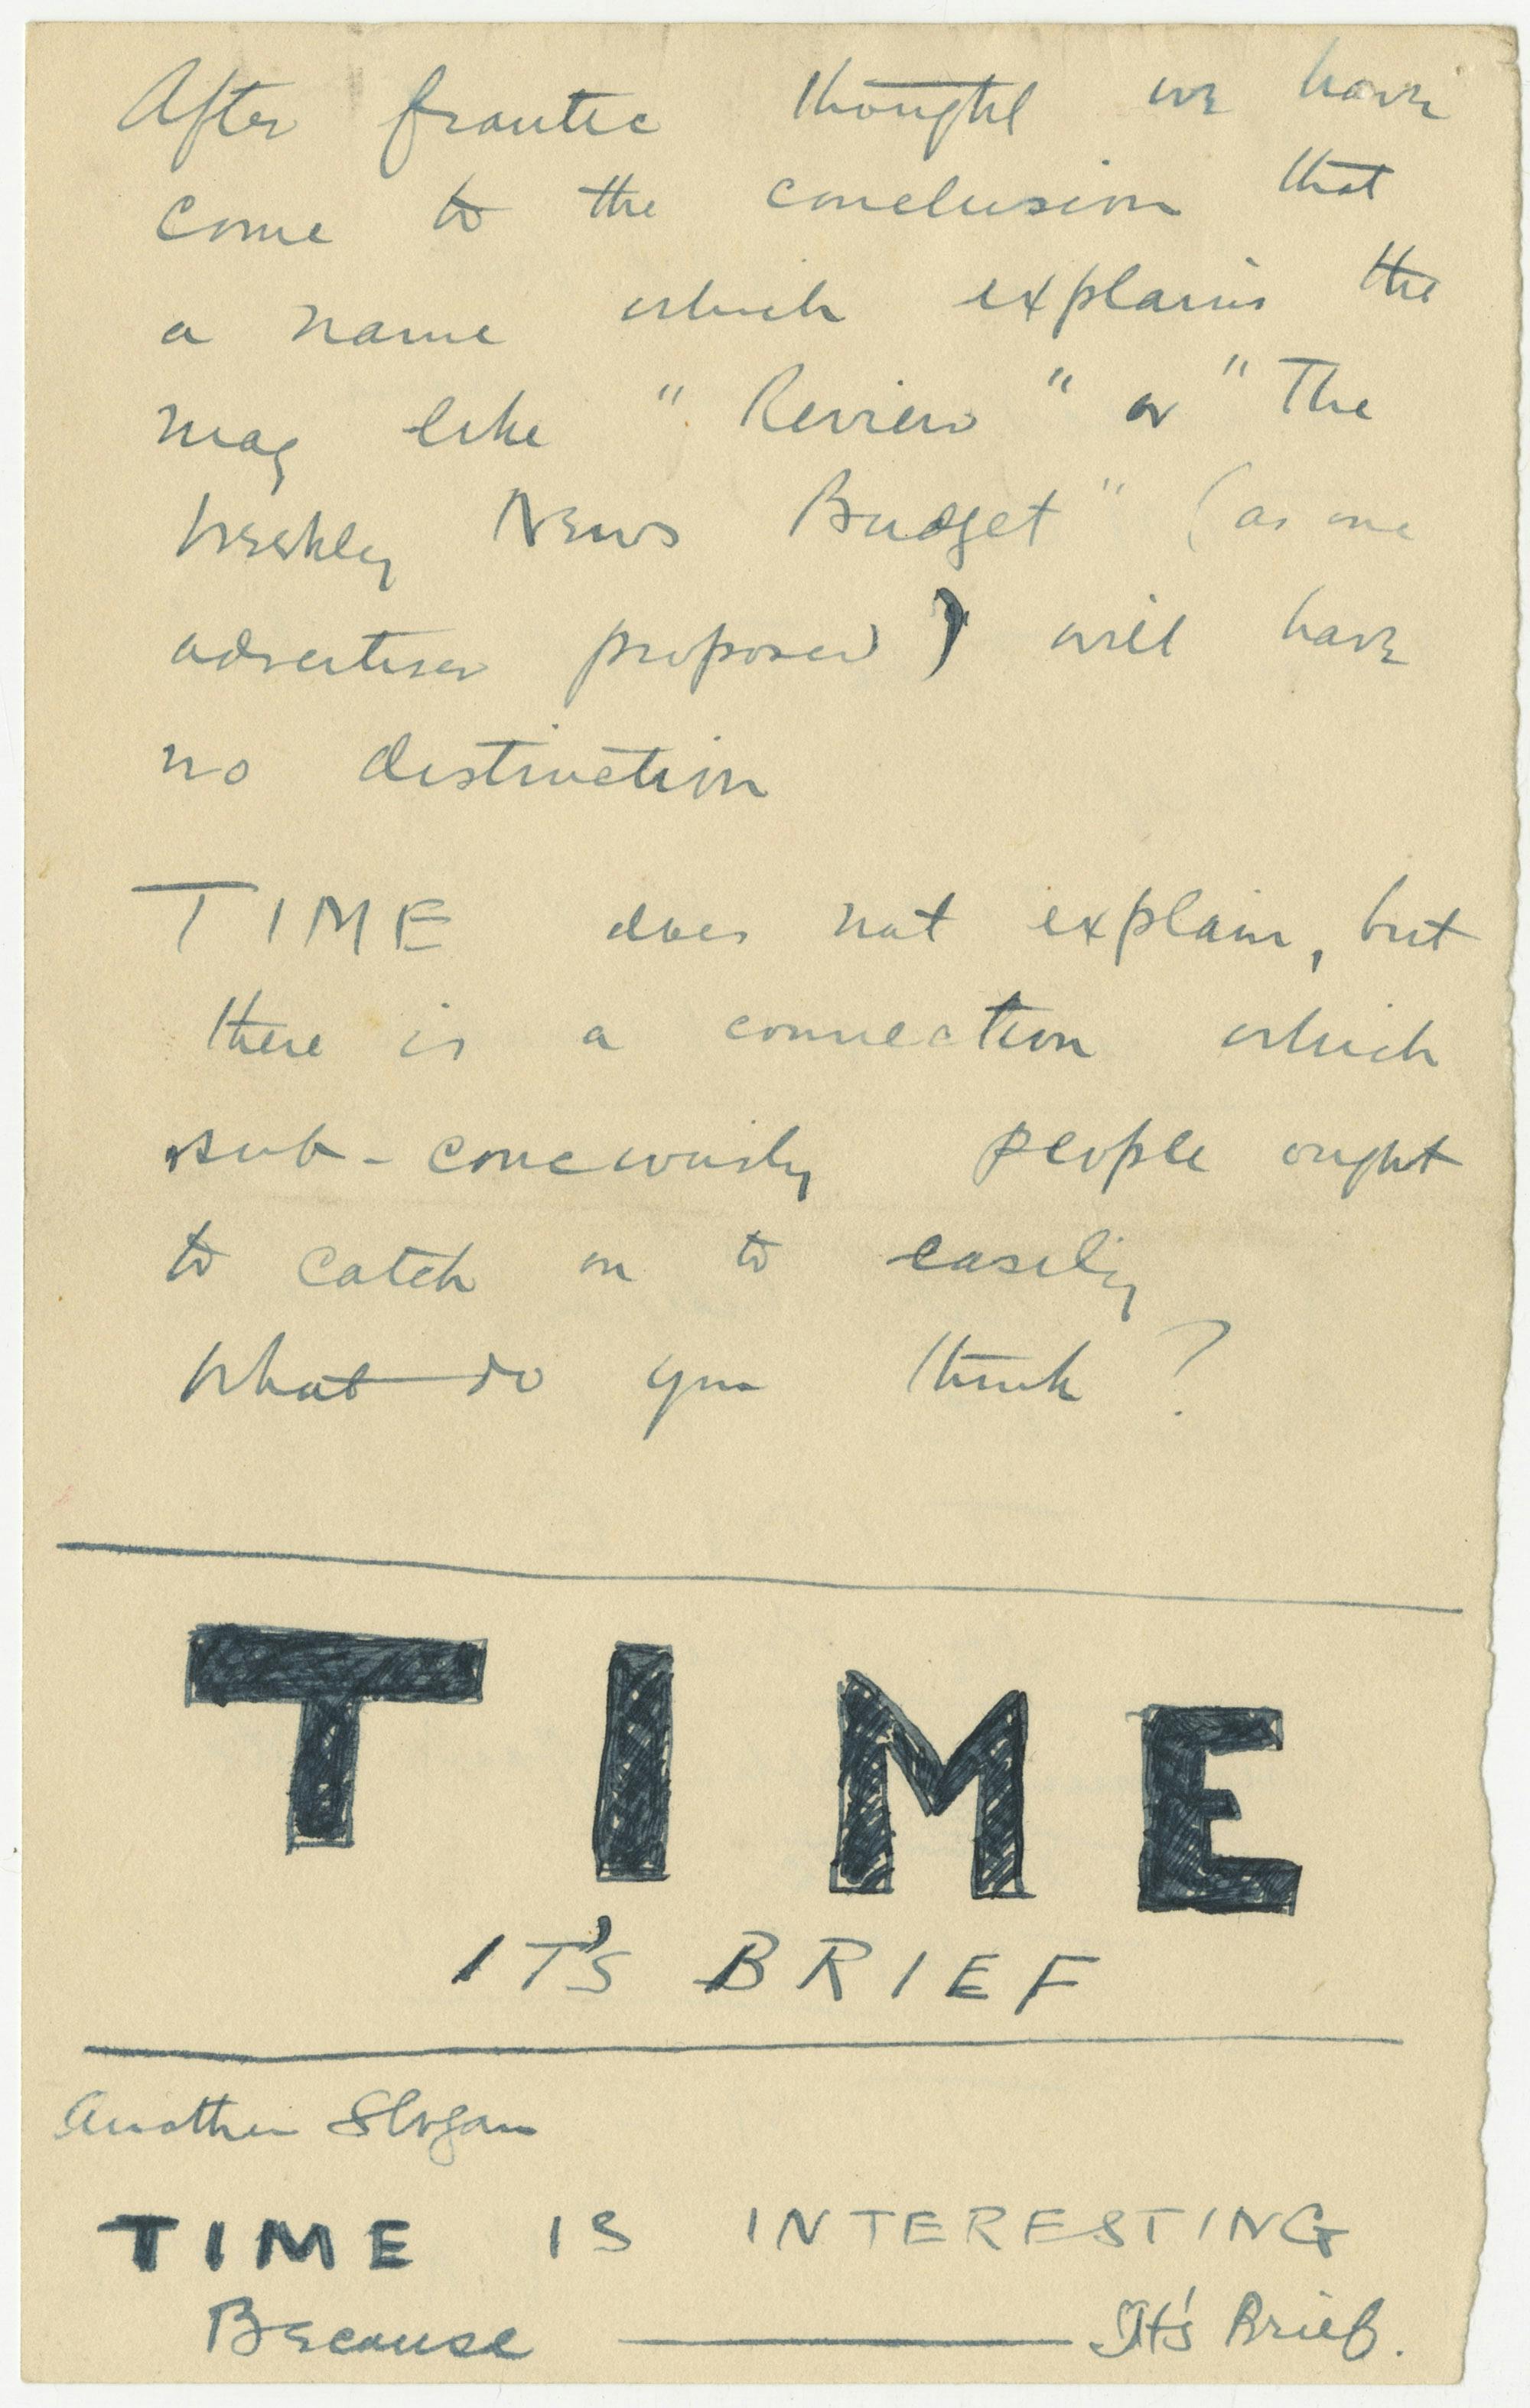 After frantic thought we have
come to the conclusion that
a name which explains the
mag like "Review" or "The
Weekly News Budget" (as one
advertiser proposed) will have
no distinction
TIME does not explain, but
there is a connection which
sub-conciously people ought
to catch on to easily
What do you think?
TIME
IT'S BRIEF
Another Slogan
TIME IS INTERESTING
Because — It's Brief.